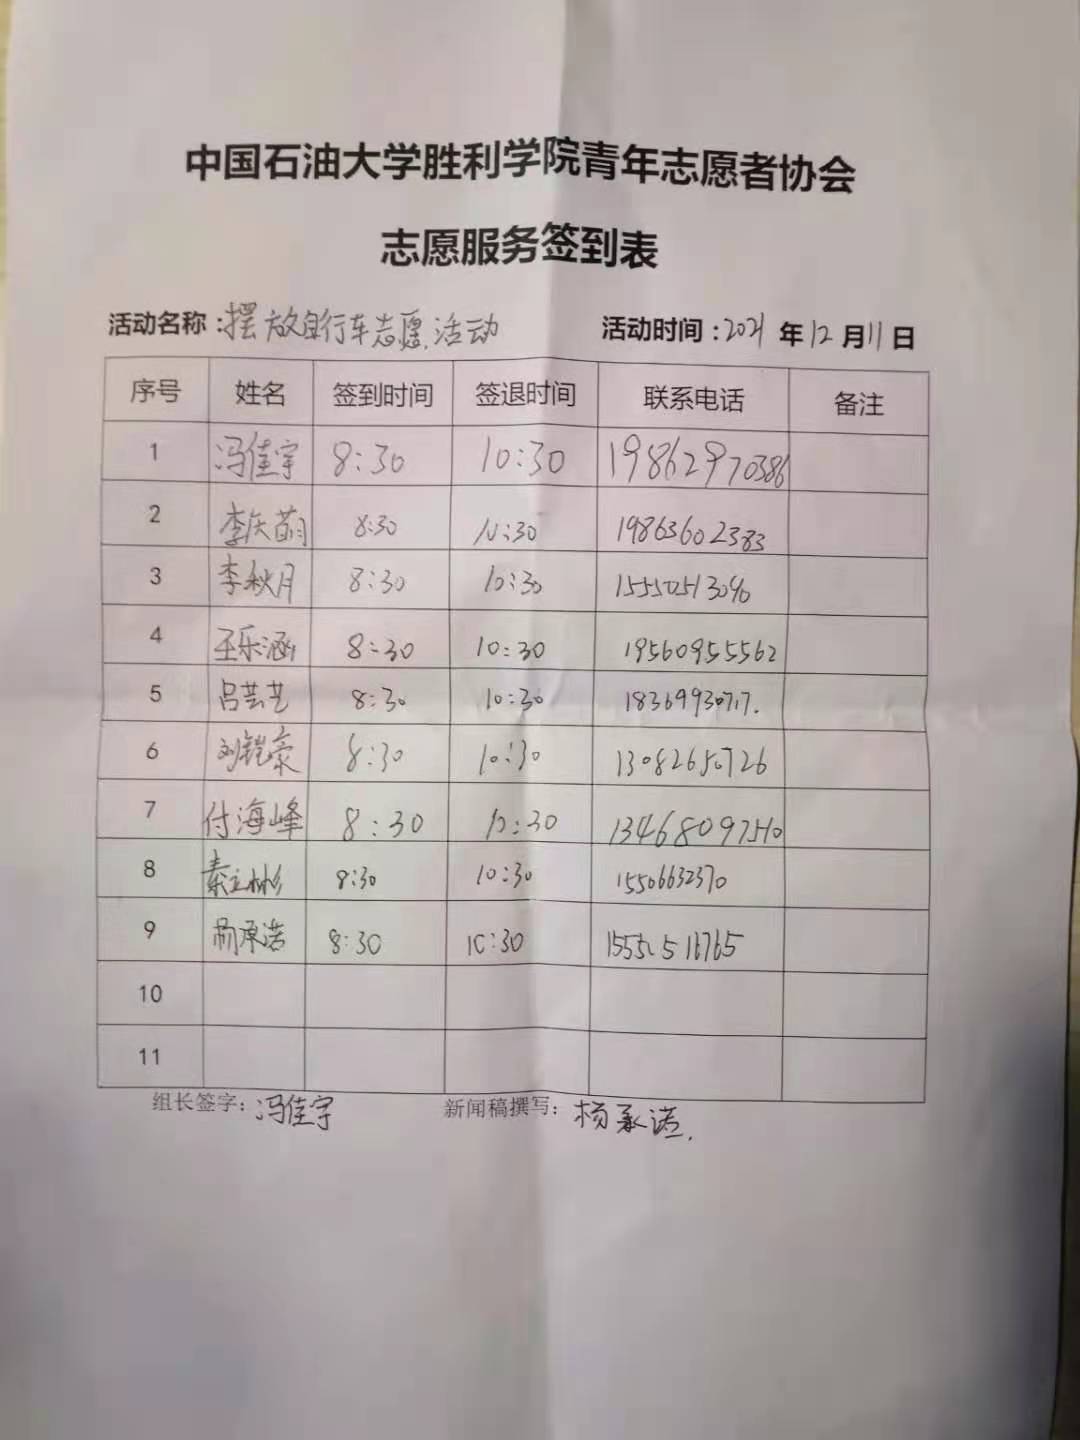 中国石油大学胜利学院青年志愿者协会
志愿服务签到表
活动名称：摆放自行车志愿活动 活动时间：2021年12月11日
序号 姓名 签到时间 签退时间 联系电话 备注
1 冯佳宇 8:30 10:30 19862970386
2 李庆萌 8:30 10:30 19863602383
3 李秋月 8:30 10:30 15550513040
4 王乐涵 8:30 10:30 19560955562
5 吕芸艺 8:30 10:30 18369930717.
6 刘铠豪 8:30 10:30 13082650726
7 付海峰 8:30 10:30 13468097510
8 秦立彬 8:30 10:30 15506632370
9 8:30 10:30
10
11
组长签字：冯佳宇 新闻稿撰写：杨承诺.